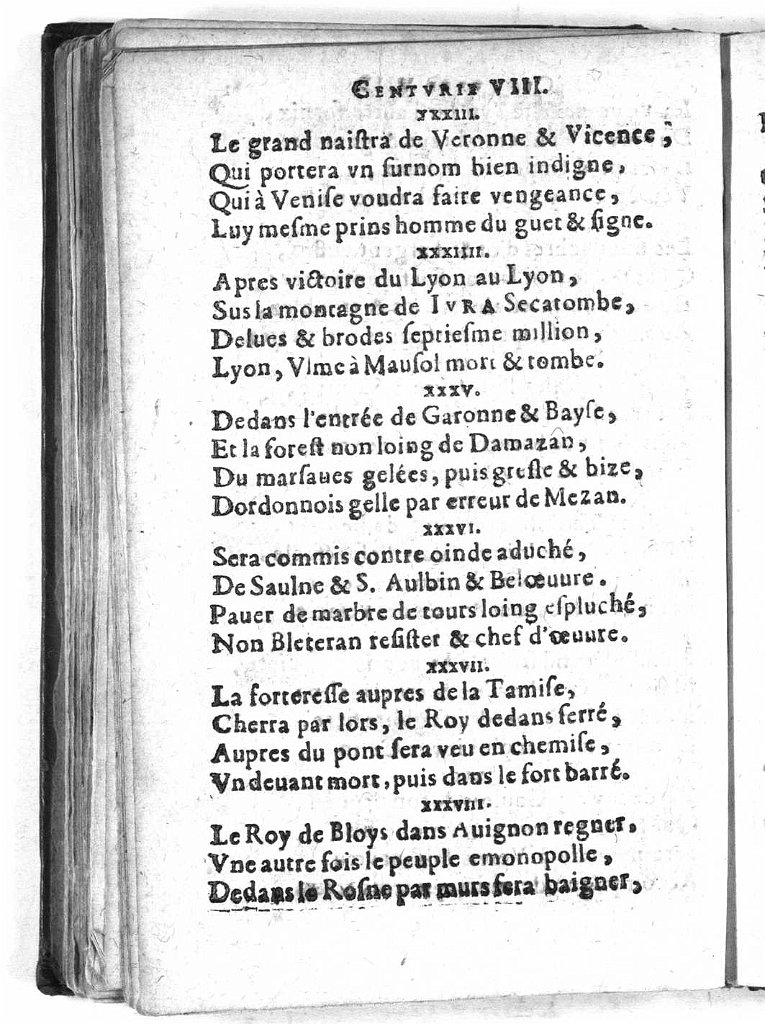 CENTVRIE VIII.
XXXIII.
Le grand naiſtra de Veronne & Vicence,
Qui portera vn ſurnom bien indigne,
Qui à Veniſe voudra faire vengeance,
Luy meſme prins homme du guet & ſigne.
XXXIIII.
Apres victoire du Lyon au Lyon,
Sus la montagne de IVRA Secatombe,
Delues & brodes ſeptieſme million,
Lyon, Vlme à Mauſol mort & tombe.
XXXV.
Dedans l'entrée de Garonne & Bayſe,
Et la foreſt non loing de Damazan,
Du marſaues gelées, puis greſle & bize,
Dordonnois gelle par erreur de Mezan.
XXXVI.
Sera commis contre oinde aduché,
De Saulne & S. Aulbin & Belœuure.
Pauer de marbre de tours loing eſpluché,
Non Bleteran reſiſter & chef d'œuure.
XXXVII.
La fortereſſe aupres de la Tamiſe,
Cherra par lors, le Roy dedans ſerré,
Aupres du pont ſera veu en chemiſe,
Vn deuant mort, puis dans le fort barré.
XXXVIII.
Le Roy de Bloys dans Auignon regner,
Vne autre fois le peuple emonopolle,
Dedans le Roſne par murs ſera baigner,